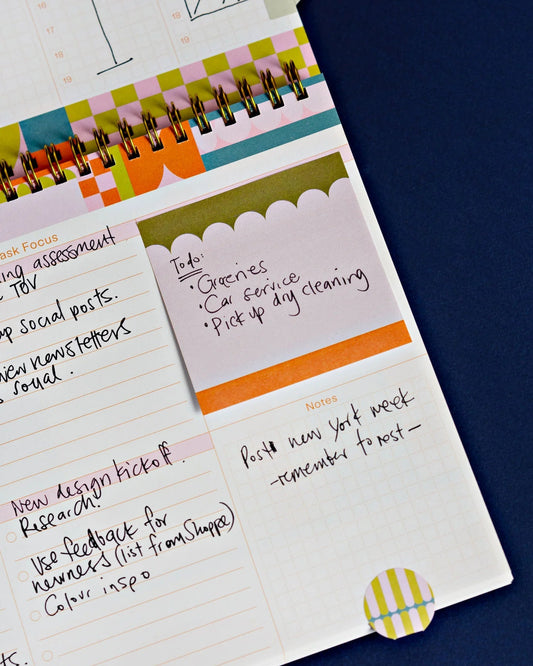 16
17
18
19
18
19
ask Focus
ing assessment
TOV
up social posts.
newsletters
To do:
• Groceries
• Car service
• Pick up dry cleaning
Notes
Post new york week
- remember to rest -
New design kickoff.
Research.
use feedback for
newness (list from Shoppe)
Colour inspo
ts.